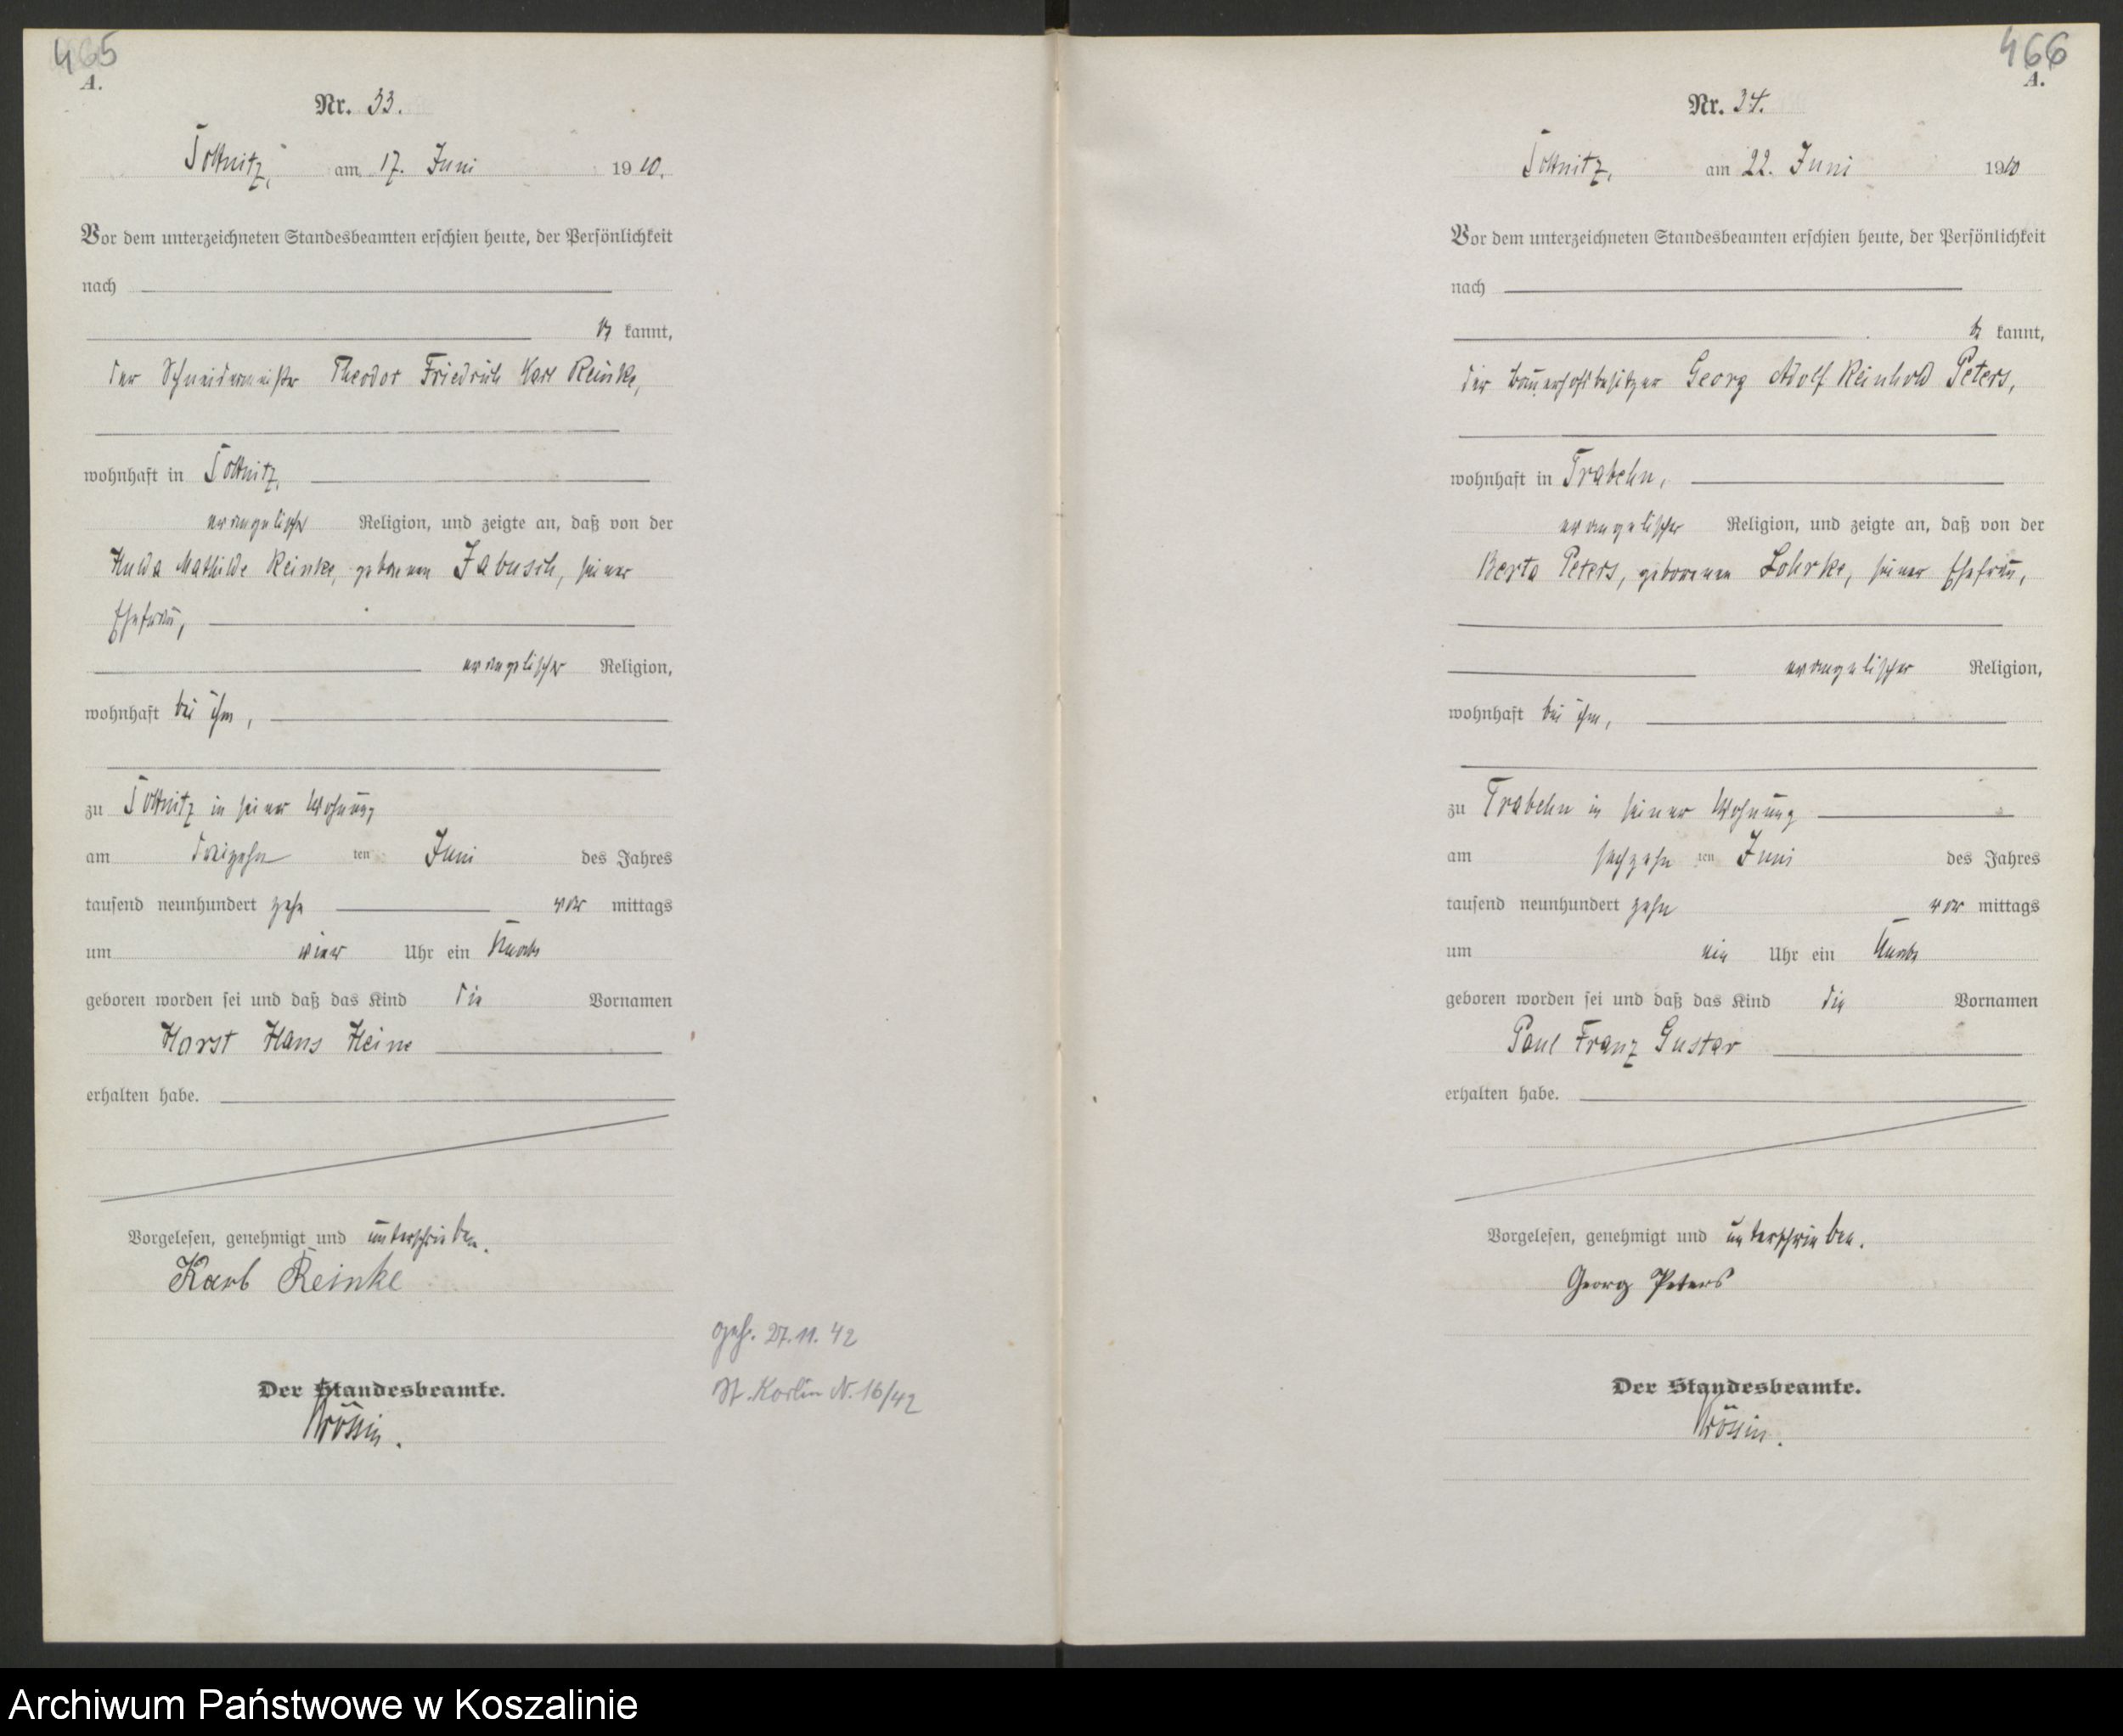 465
A.
Nr. 33.
am 17. Juni 1910.
Vor dem unterzeichneten Standesbeamten erschien heute, der Persönlichkeit
nach
kannt,
der Schneidermeister Theodor Friedrich Karl Reinke,
wohnhaft in
evangelischer Religion, und zeigte an, daß von der
Hulda Mathilde Reinke, geborenen Jabusch, seiner
Ehefrau,
evangelischer Religion,
wohnhaft bei ihm,
zu in seiner Wohnung
am dreizehn ten Juni des Jahres
tausend neunhundert zehn vor mittags
um vier Uhr ein Knabe
geboren worden sei und daß das Kind die Vornamen
Horst Hans Heinz
erhalten habe.
Vorgelesen, genehmigt und unterschrieben.
Karl Reinke
Der Standesbeamte.
gest. 27.11.42
St. N. 16/42
466
A.
Nr. 34.
am 22. Juni 1910
Vor dem unterzeichneten Standesbeamten erschien heute, der Persönlichkeit
nach
be kannt,
der Bauerhofsbesitzer Georg Adolf Reinhold Peters,
wohnhaft in Trabehn,
evangelischer Religion, und zeigte an, daß von der
Berta Peters, geborenen Lohrke, seiner Ehefrau,
evangelischer Religion,
wohnhaft bei ihm,
zu Trabehn in seiner Wohnung
am sechzehn ten Juni des Jahres
tausend neunhundert zehn vor mittags
um ein Uhr ein Knabe
geboren worden sei und daß das Kind die Vornamen
Paul Franz Gustav
erhalten habe.
Vorgelesen, genehmigt und unterschrieben.
Georg Peters
Der Standesbeamte.
Archiwum Państwowe w Koszalinie